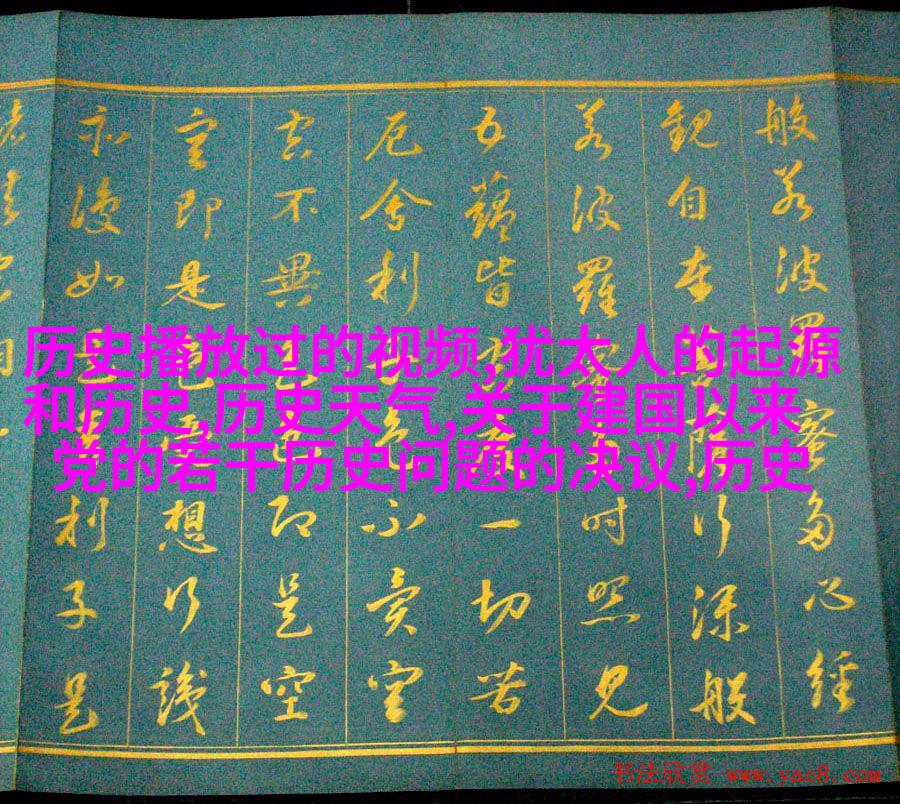 历史播放过的视频,犹太人的起源
和历史,历史天气,关于建国以来
党的若干历史问题的决议,历史
般若波羅蜜多心經
觀自在行深般
若波羅時照見
五蘊皆一切苦
厄舍利色不異空
空不異色即是空
空即是色想行識
亦復如是利子是
书法欣赏 www.yac8.com